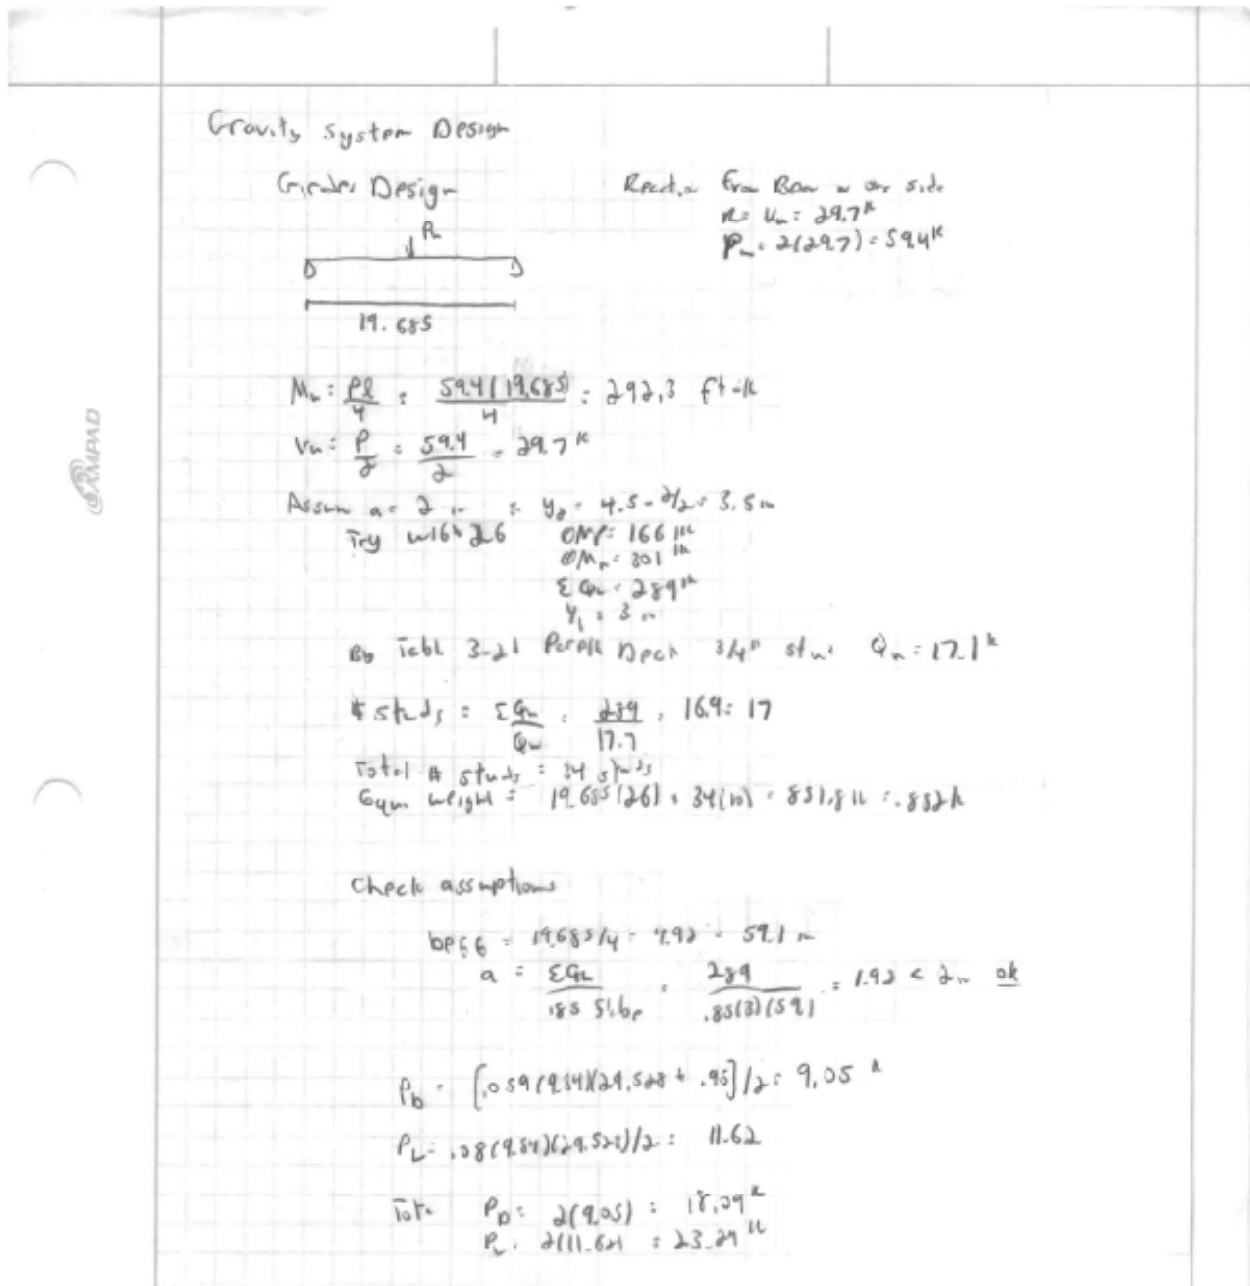 Gravity System Design
Girder Design
Reaction From Beam on one side
R = Vu = 29.7k
Pu = 2(29.7) = 59.4k
Pu
19.685
Mu = Pl/4 = 59.4(19.685)/4 = 292.3 ft-k
Vu = P/2 = 59.4/2 = 29.7k
AMPAD
Assum a = 2 in : y2 = 4.5 - 2/2 = 3.5 in
Try W16x26 ØMp = 166 1k
ØMn = 301 1k
ΣQn = 289k
Y1 = 3 in
By Table 3-21 Deck 3/4" stud Qn = 17.1k
# studs = ΣQn/Qn = 289/17.7 = 16.9 = 17
Total # studs = 34 studs
Equiv weight = 19.685(26) + 34(10) = 851.8 lb = .852k
Check assumptions
beff = 19.685/4 = 4.92 = 59.1 in
a = ΣQn/.85 f'c be = 289/.85(3)(59.1) = 1.92 < 2 in ok
PD = [.059(9.84)(29.528 + .95]/2 = 9.05 k
PL = .08(9.84)(29.528)/2 = 11.62
Tot. PD = 2(9.05) = 18.09k
PL = 2(11.62) = 23.24k